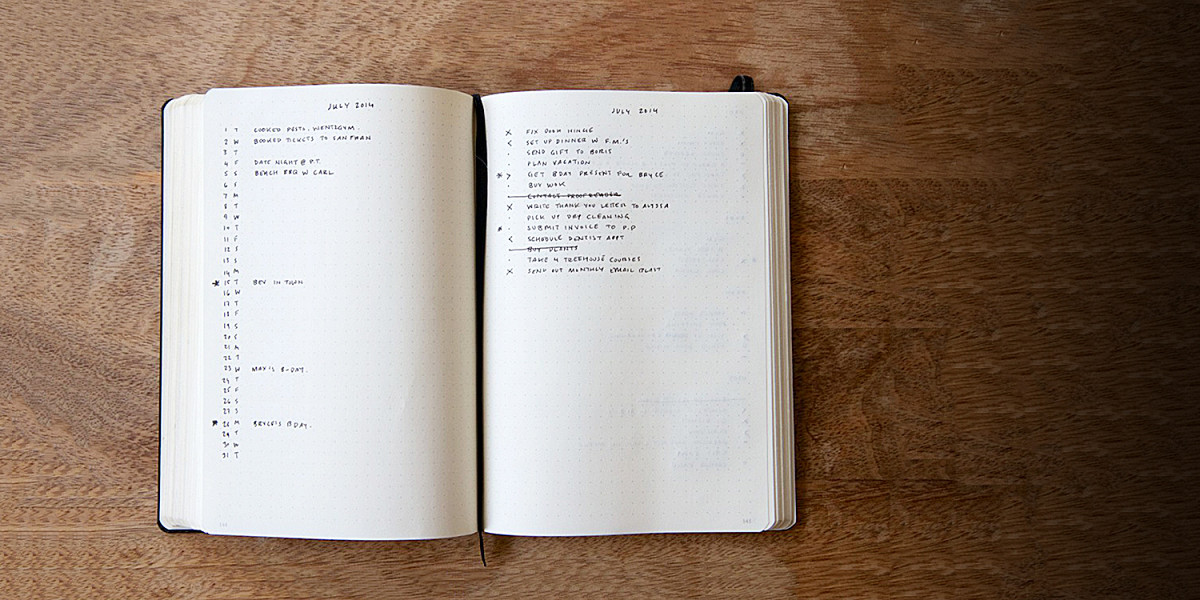 JULY 2014
1 T COOKED PESTO. WENT GYM.
2 W BOOKED TICKETS TO SAN FRAN
3 T
4 F DATE NIGHT @ P.T.
5 S BEACH BBQ W CARL
6 S
7 M
8 T
9 W
10 T
11 F
12 S
13 S
14 M
* 15 T BEV IN TOWN
16 W
17 T
18 F
19 S
20 S
21 M
22 T
23 W MAX'S B-DAY.
24 T
25 F
26 S
27 S
* 28 M BRYCE'S BDAY.
29 T
30 W
31 T
JULY 2014
X FIX DOOR HINGE
< SET UP DINNER W F.M.'S
· SEND GIFT TO BORIS
· PLAN VACATION
* > GET BDAY PRESENT FOR BRYCE
· BUY WOK
· CONTACT PROOFREADER
X WRITE THANK YOU LETTER TO ALYSSA
· PICK UP DRY CLEANING
* · SUBMIT INVOICE TO P.P
< SCHEDULE DENTIST APPT
BUY PLANTS
· TAKE 4 TREEHOUSE COURSES
X SEND OUT MONTHLY EMAIL BLAST